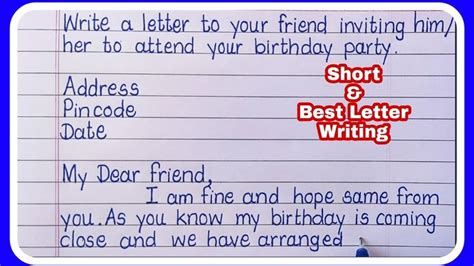 Write a letter to your friend inviting him/
her to attend your birthday party.
Short
&
Best Letter
Writing
Address
Pincode
Date
My Dear friend,
I am fine and hope same from
you. As you know my birthday is coming
close and we have arranged